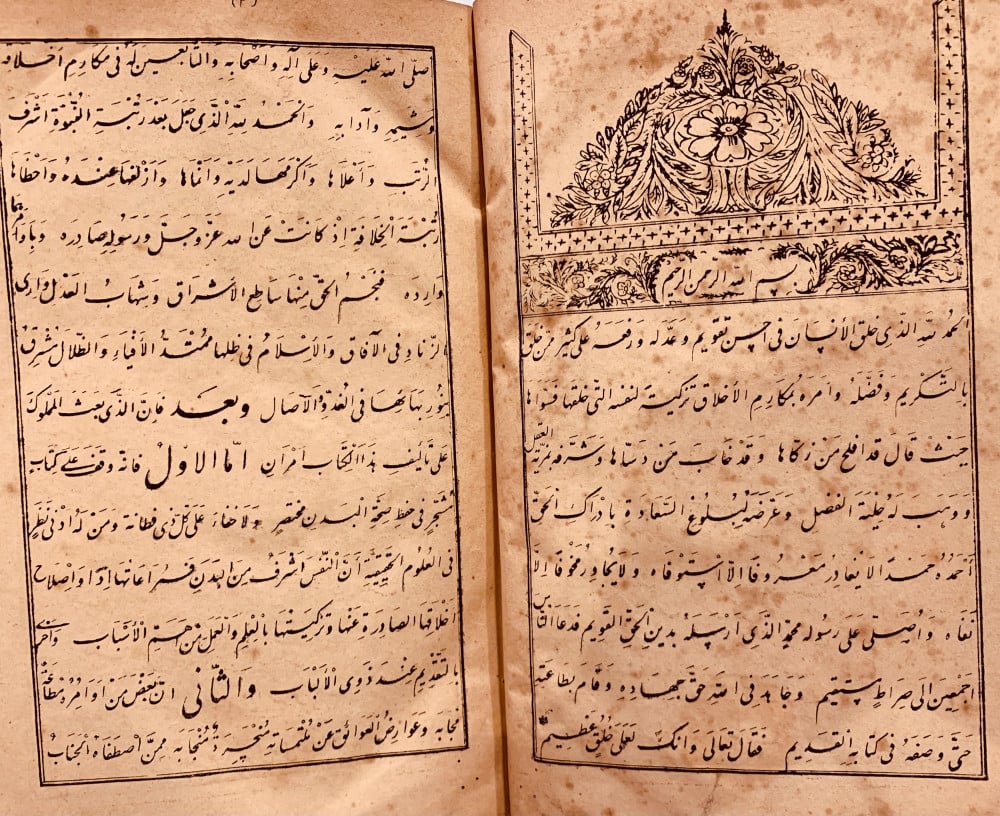 بسم الله الرحمن الرحيم
الحمد لله الذي خلق الأنسان في احسن تقويم وعدله ورفعه على كثير ممن خلق
بالتكريم وفضله وامره بمكارم الأخلاق تزكية لنفسه التي خلقها فسواها
حيث قال قد افلح من زكاها وقد خاب من دساها وشرفه بمزية العقل
ووهب له حلية الفضل وعرضه لبلوغ السعادة بادراك الحق
احمده حمدا لا يغادر معروفا الا استوفاه ولا يجاور مخوفا الا
نفاه واصلي على رسوله محمد الذي ارسله بدين الحق القويم فدعا الناس
اجمعين الى صراط مستقيم وجاهد في الله حق جهاده وقام بطاعته
حتى وصفه في كتابه القديم فقال تعالى وانك لعلى خلق عظيم
(٣)
صلى الله عليه وعلى آله واصحابه والتابعين له في مكارم اخلاقه
وشيمه وآدابه والحمد لله الذي جعل بعد رتبة النبوة اشرف
الرتب واعلاها واكرمها لديه وانماها وازلفها عنده واحظاها
رتبة الخلافة اذ كانت عن الله عز وجل ورسوله صادره
وارده فنجم الحق منها ساطع الأشراق وشهاب العدل وارى
الزناد في الآفاق والأسلام في ظلها ممتد الأفياء والظلال مشرق
بنور بهائها في الغدو والآصال وبعد فان الذي بعث المملوك
على تأليف هذا الكتاب امران اما الاول فانه وقف على كتاب
مشجر في حفظ صحة البدن مختصر ولا خفاء على كل ذي فطانة ومن له ادنى نظر
في العلوم الحقيقية أن النفس اشرف من البدن فمراعاتها اذا واصلاح
اخلاقها الصادرة عنها وتزكيتها بالعلم والعمل من اهم الأشياب واحرى
بالتقديم عند ذوي الألباب والثاني ان بعض من اوامره مطاعة
مجابه وعوارض العوائق عن ملتمساته منجابه ممن اصطفاه الجناب